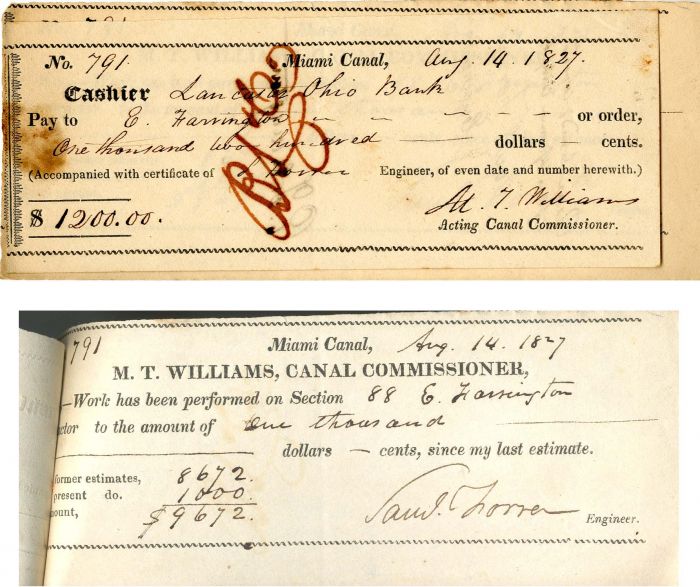 No. 791. Miami Canal, Aug. 14. 1827.
Cashier Lancaster Ohio Bank
Pay to E. Farrington or order,
One thousand two hundred dollars — cents.
(Accompanied with certificate of S Forrer Engineer, of even date and number herewith.)
$ 1200.00. M. T. Williams
Acting Canal Commissioner.
791 Miami Canal, Aug. 14. 1827
M. T. WILLIAMS, CANAL COMMISSIONER,
—Work has been performed on Section 88 E. Farrington
ctor to the amount of One thousand
dollars — cents, since my last estimate.
ormer estimates, 8672.
present do. 1000.
ount, $9672. Saml. Forrer Engineer.